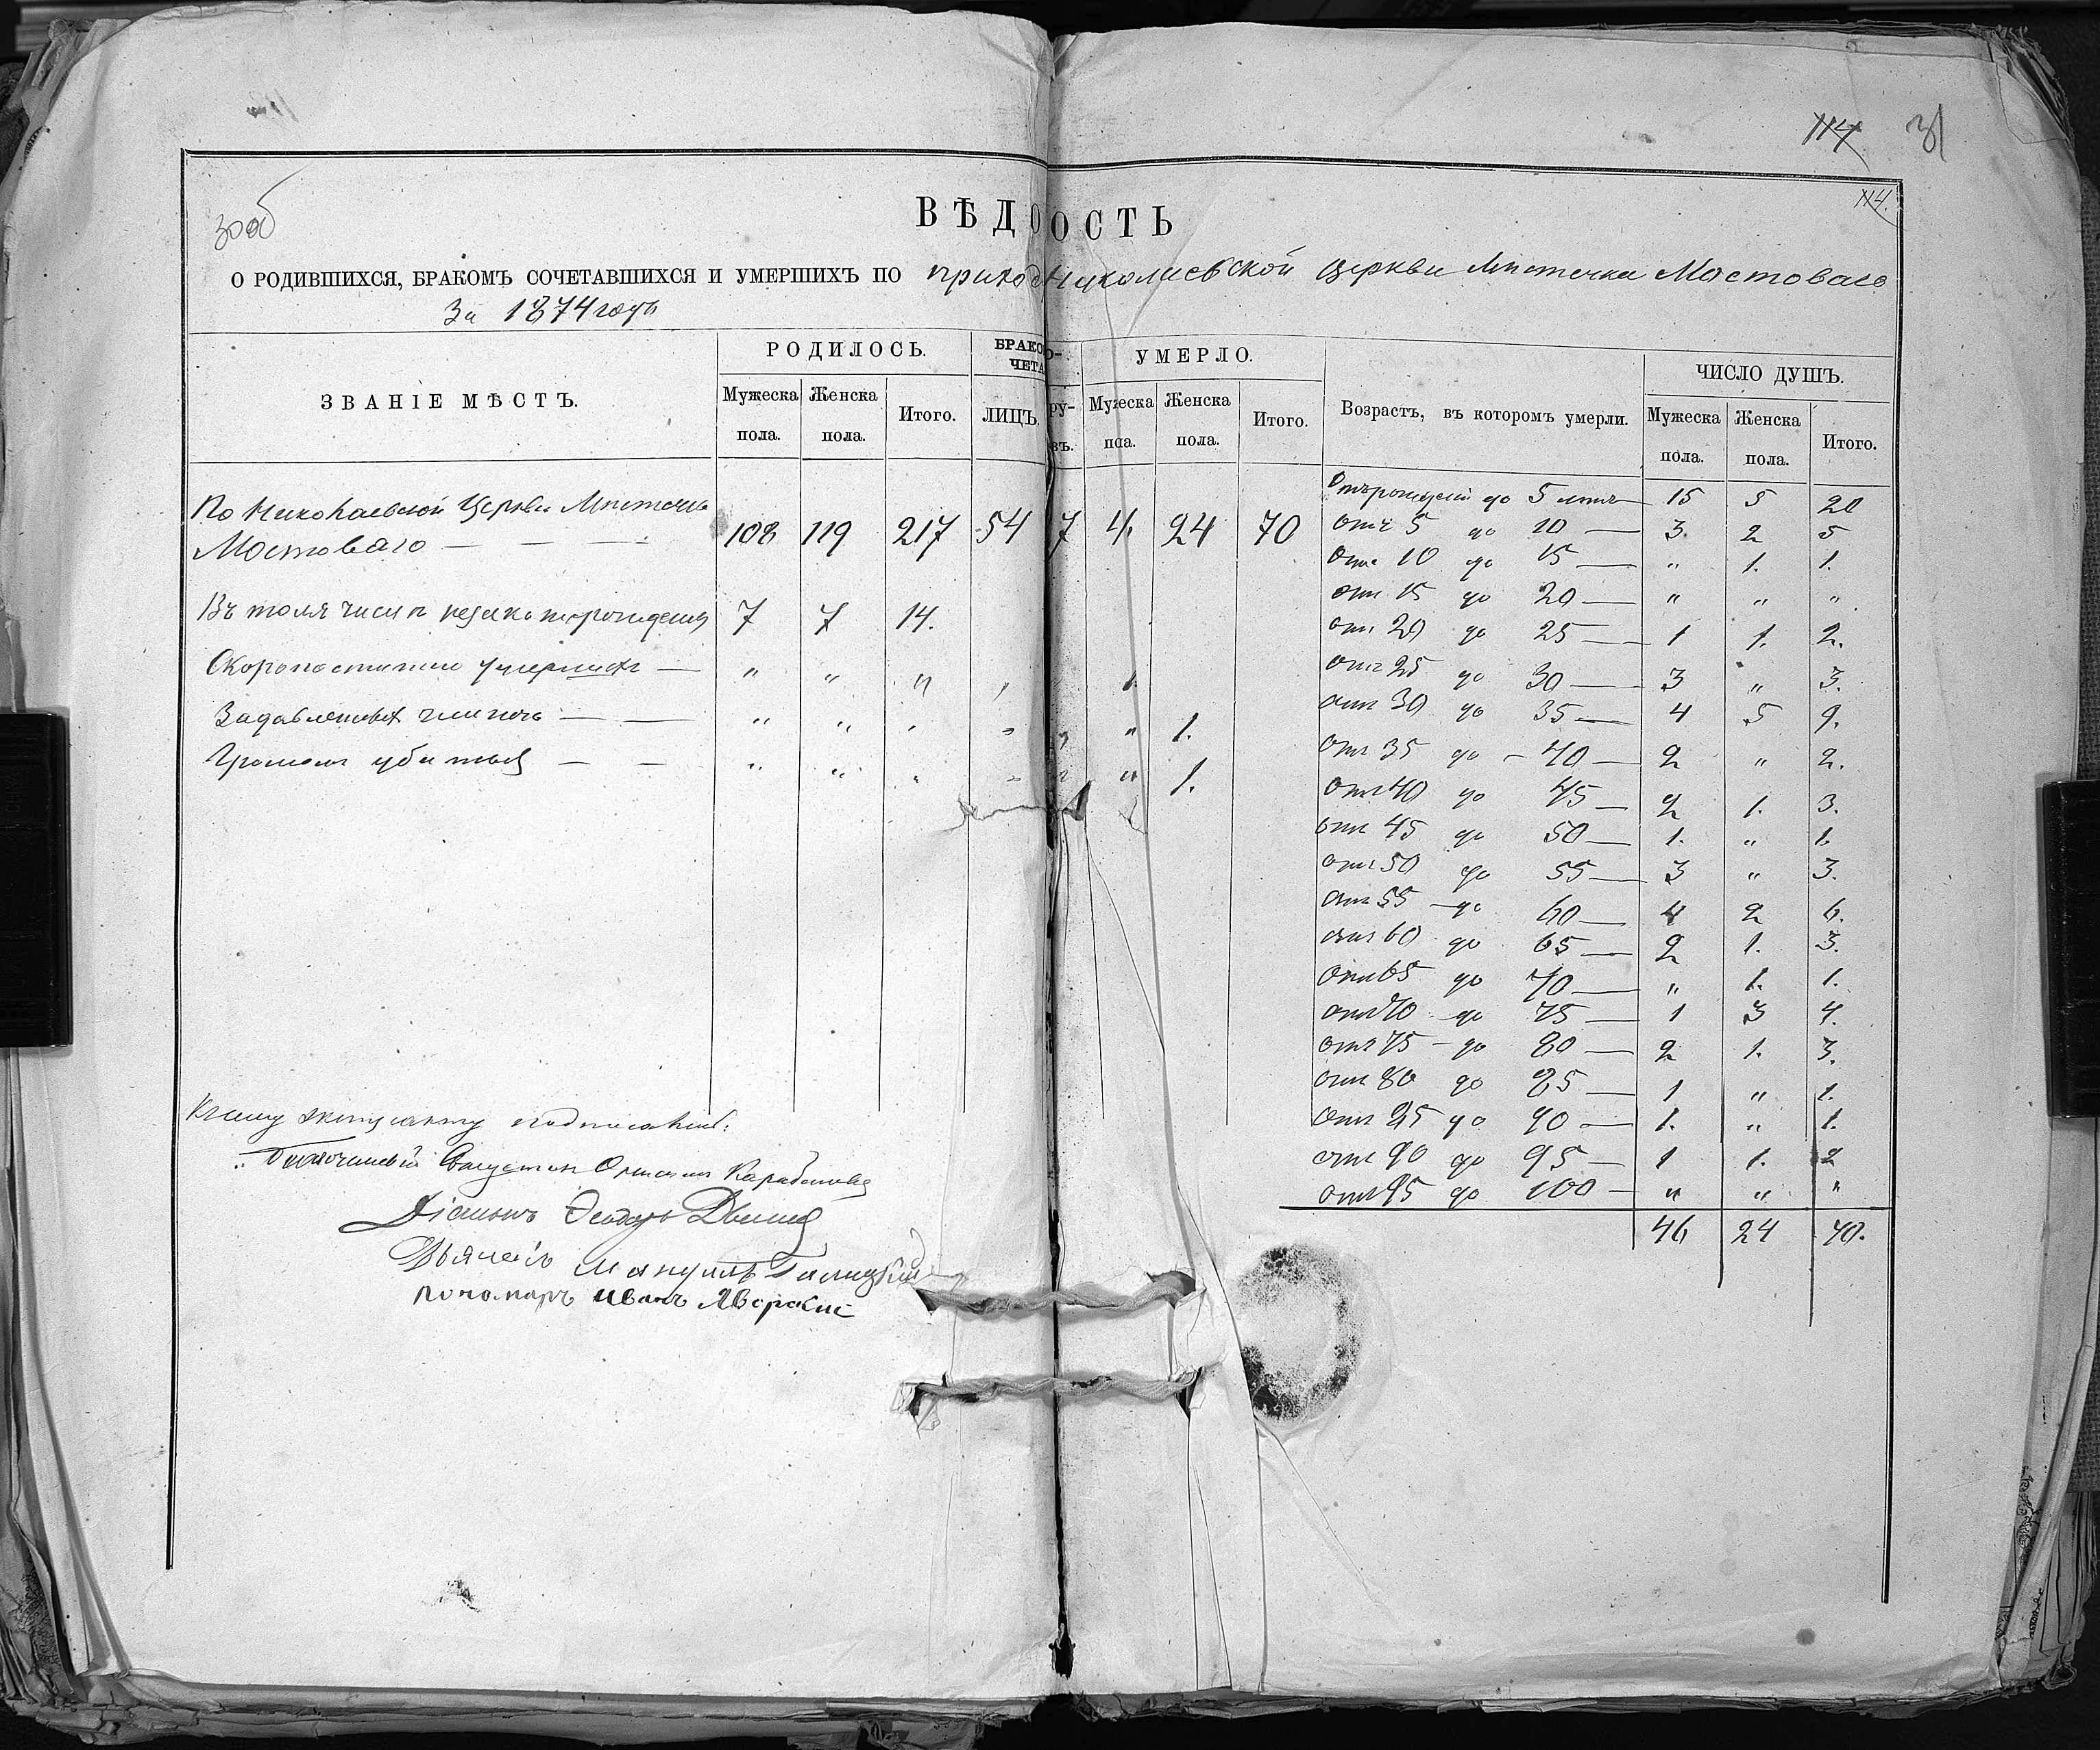 114 31
114.
30об
ВѢДО ОСТЬ
О РОДИВШИХСЯ, БРАКОМЪ СОЧЕТАВШИХСЯ И УМЕРШИХЪ ПО приход Николаевской Церкви Мѣстечка Мостоваго
За 1874 годъ
ЗВАНІЕ МѢСТЪ. РОДИЛОСЬ. БРАКО О- ЧЕТА УМЕРЛО. Возрастъ, въ которомъ умерли. ЧИСЛО ДУШЪ.
Мужеска пола. Женска пола. Итого. ЛИЦЪ. ру- въ. Мужеска поа. Женска пола. Итого. Мужеска пола. Женска пола. Итого.
По Николаевской Церкви Мѣстечка
Мостоваго — — — 108 119 217 54 7 4. 24 70
Въ томъ числѣ незаконорожденія 7 7 14.
Скоропостижно умершихъ — " " " " 1.
Задавленныхъ — — " " " " " " 1.
Громомъ убитыхъ — — " " " " " " 1.
Отъ рожденія до 5 лѣтъ — 15 5 20
отъ 5 до 10 — 3. 2 5
отъ 10 до 15 — " 1. 1.
отъ 15 до 20 — " " "
отъ 20 до 25 — 1 1. 2.
отъ 25 до 30 — 3 " 3.
отъ 30 до 35 — 4 5 9.
отъ 35 до 40 — 2 " 2.
отъ 40 до 45 — 2 1. 3.
отъ 45 до 50 — 1. " 1.
отъ 50 до 55 — 3 " 3.
отъ 55 до 60 — 4 2 6.
отъ 60 до 65 — 2 1. 3.
отъ 65 до 70 — " 1. 1.
отъ 70 до 75 — 1 3 4.
отъ 75 до 80 — 2 1. 3.
отъ 80 до 85 — 1 " 1.
отъ 85 до 90 — 1. " 1.
отъ 90 до 95 — 1 1. 2
отъ 95 до 100 — " " "
46 24 70.
К сему экстракту подписались:
Діаконъ Ѳеодоръ
Дьячекъ Мануилъ Галицкій
пономарь Иванъ Яворскій